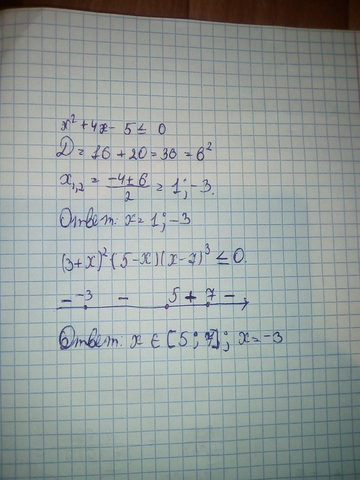 x² + 4x - 5 ≤ 0
D = 16 + 20 = 36 = 6²
x₁,₂ = (-4+6)/2 = 1; -3.
Ответ: x = 1; -3
(3+x)² (5-x)(x-7)³ ≤ 0.
- -3 - 5 + 7 -
Ответ: x ∈ [5; 7]; x = -3